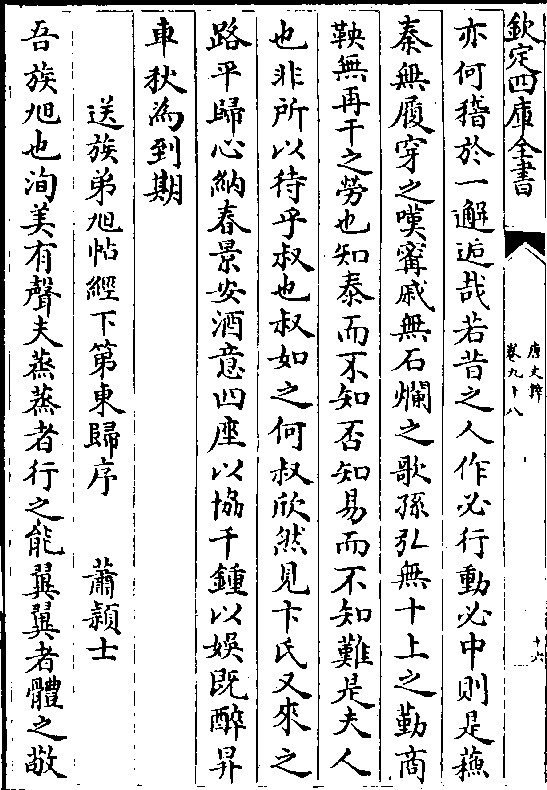 欽定四庫全書
唐文粹
卷九十八
十六
亦何稽於一邂逅哉若昔之人作必行動必中則是蘓
秦無履穿之嘆甯戚無石爛之歌孫弘無十上之勤商
鞅無再干之勞也知泰而不知否知易而不知難是夫人
也非所以待乎叔也叔如之何叔欣然見卞氏又來之
路平歸心納春景安酒意四座以協千鍾以娛既醉昇
車秋為到期
送族弟旭帖經下第東歸序 蕭頴士
吾族旭也洵美有聲夫蒸蒸者行之能翼翼者體之敬